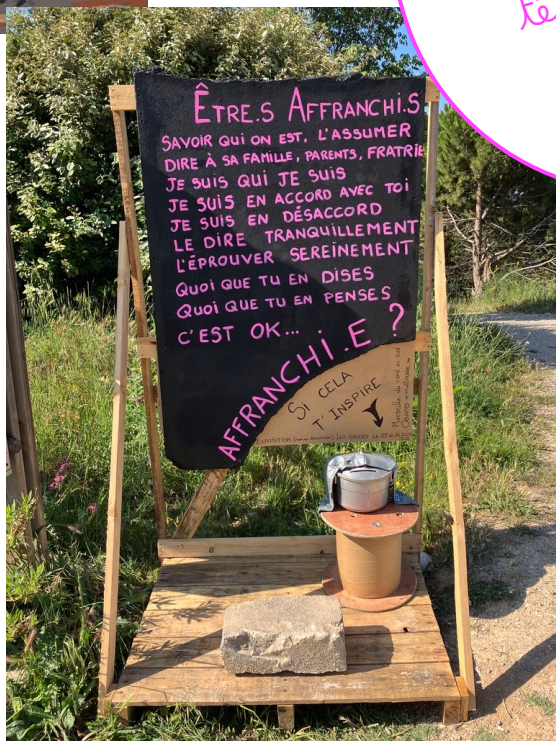 ÊTRE.S AFFRANCHI.S
SAVOIR QUI ON EST, L'ASSUMER
DIRE À SA FAMILLE, PARENTS, FRATRIE
JE SUIS QUI JE SUIS
JE SUIS EN ACCORD AVEC TOI
JE SUIS EN DÉSACCORD
LE DIRE TRANQUILLEMENT
L'ÉPROUVER SEREINEMENT
QUOI QUE TU EN DISES
QUOI QUE TU EN PENSES
C'EST OK...
AFFRANCHI.E ?
SI CELA
T'INSPIRE
EXPOSITION
LES
LE
te